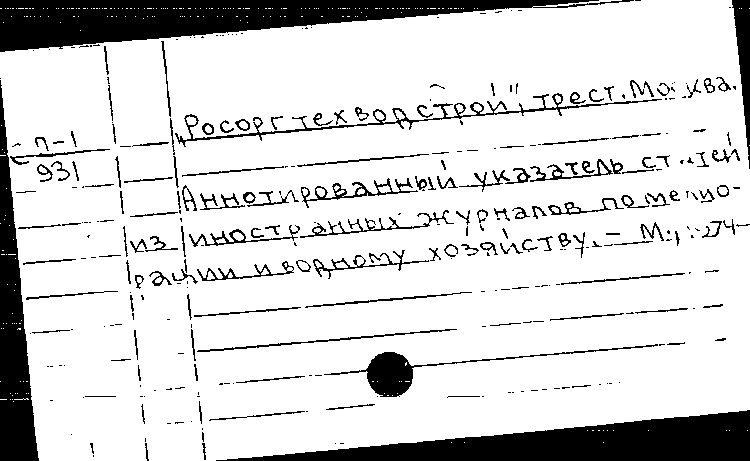 П-1
931
„Росоргтехводстрой", трест. Москва.
Аннотированный указатель статей
из иностранных журналов по мелио-
рации и водному хозяйству. - М.,